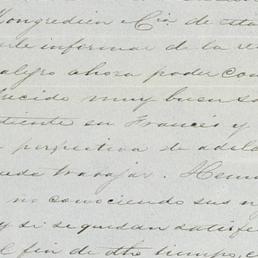 Kongredien & Cia de esta
informar de la re
alegro ahora poder com
ducido muy buen sa
diente en Francés y
perspectiva de adela
da trabajar. Hemo
no conociendo sus n
y si se quedan satisfe
l fin de dho tiempo, e